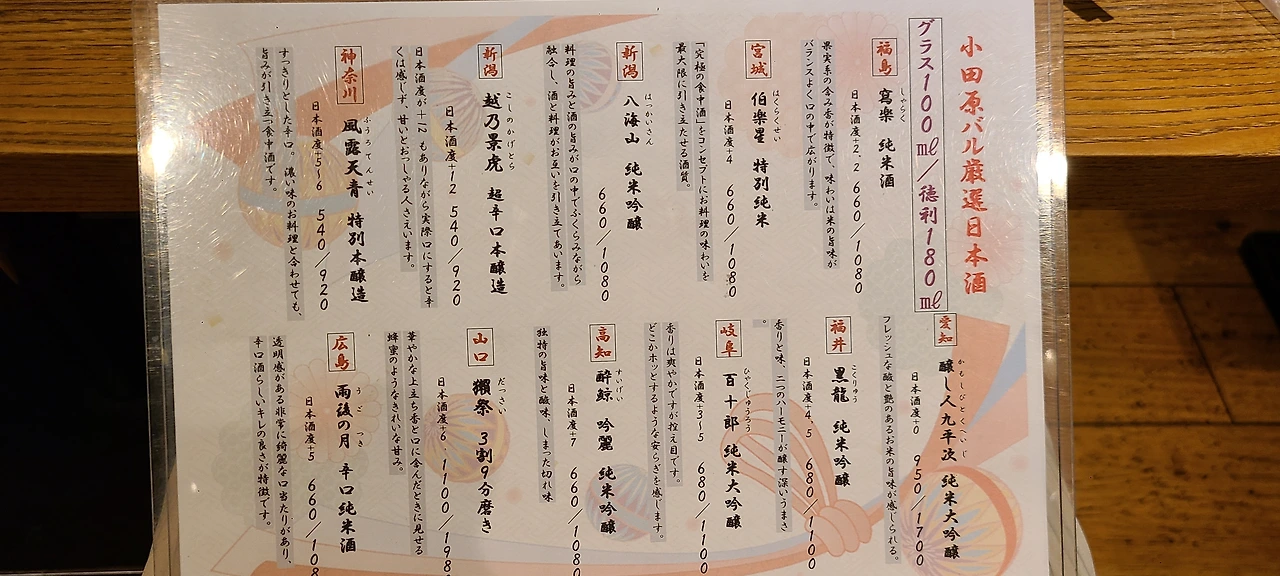 小田原バル厳選日本酒
グラス100ml/徳利180ml
福島
寫楽 純米酒
しゃらく
日本酒度+2.2 660/1080
果実系の含み香が特徴で、味わいは米の旨味が
バランスよく口の中で広がります。
宮城
伯楽星 特別純米
はくらくせい
日本酒度+4 660/1080
「究極の食中酒」をコンセプトにお料理の味わいを
最大限に引き立たせる酒質。
新潟
八海山 純米吟醸
はっかいさん
660/1080
料理の旨みと酒の旨みが口の中でふくらみながら
融合し、酒と料理がお互いを引き立てあいます。
新潟
越乃景虎 超辛口本醸造
こしのかげとら
日本酒度+12 540/920
日本酒度が+12 もありながら実際口にすると辛
くは感じず、甘いとおっしゃる人さえいます。
神奈川
風露天青 特別本醸造
ふうろてんせい
日本酒度+5~6 540/920
すっきりとした辛口。濃い味のお料理と合わせても、
旨みが引き立つ食中酒です。
愛知
醸し人九平次 純米大吟醸
かもしびとくへいじ
日本酒度+0 950/1700
フレッシュな酸と艶のあるお米の旨味が感じられる。
福井
黒龍 純米吟醸
こくりゅう
日本酒度+4.5 680/1100
香りと味、二つのハーモニーが醸す深いうまさ
。
岐阜
百十郎 純米大吟醸
ひゃくじゅうろう
日本酒度+3~5 680/1100
香りは爽やかですが控え目です。
どこかホッとするような安らぎを感じます。
高知
酔鯨 吟麗 純米吟醸
すいげい
日本酒度+7 660/1080
独特の旨味と酸味、しまった切れ味
山口
獺祭 3割9分磨き
だっさい
日本酒度+6 1100/198
華やかな上立ち香と口に含んだときに見せる
蜂蜜のようなきれいな甘み。
広島
雨後の月 辛口純米酒
うごのつき
日本酒度+5 660/108
透明感がある非常に綺麗な口当たりがあり、
辛口酒らしいキレの良さが特徴です。